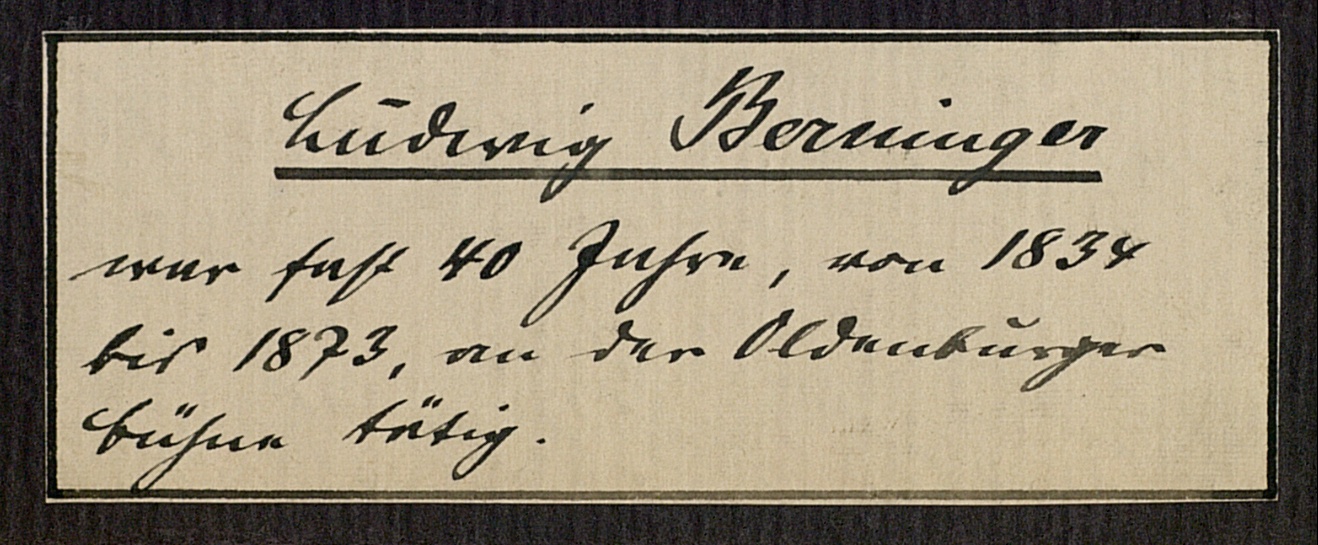 Ludwig Berninger
war fast 40 Jahre, von 1834
bis 1873, an der Oldenburger
Bühne tätig.